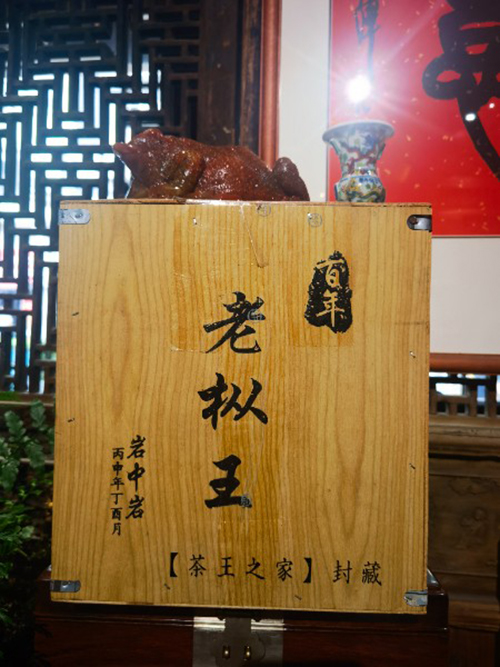 百年
老枞王
岩中岩
丙申年丁酉月
【茶王之家】封藏